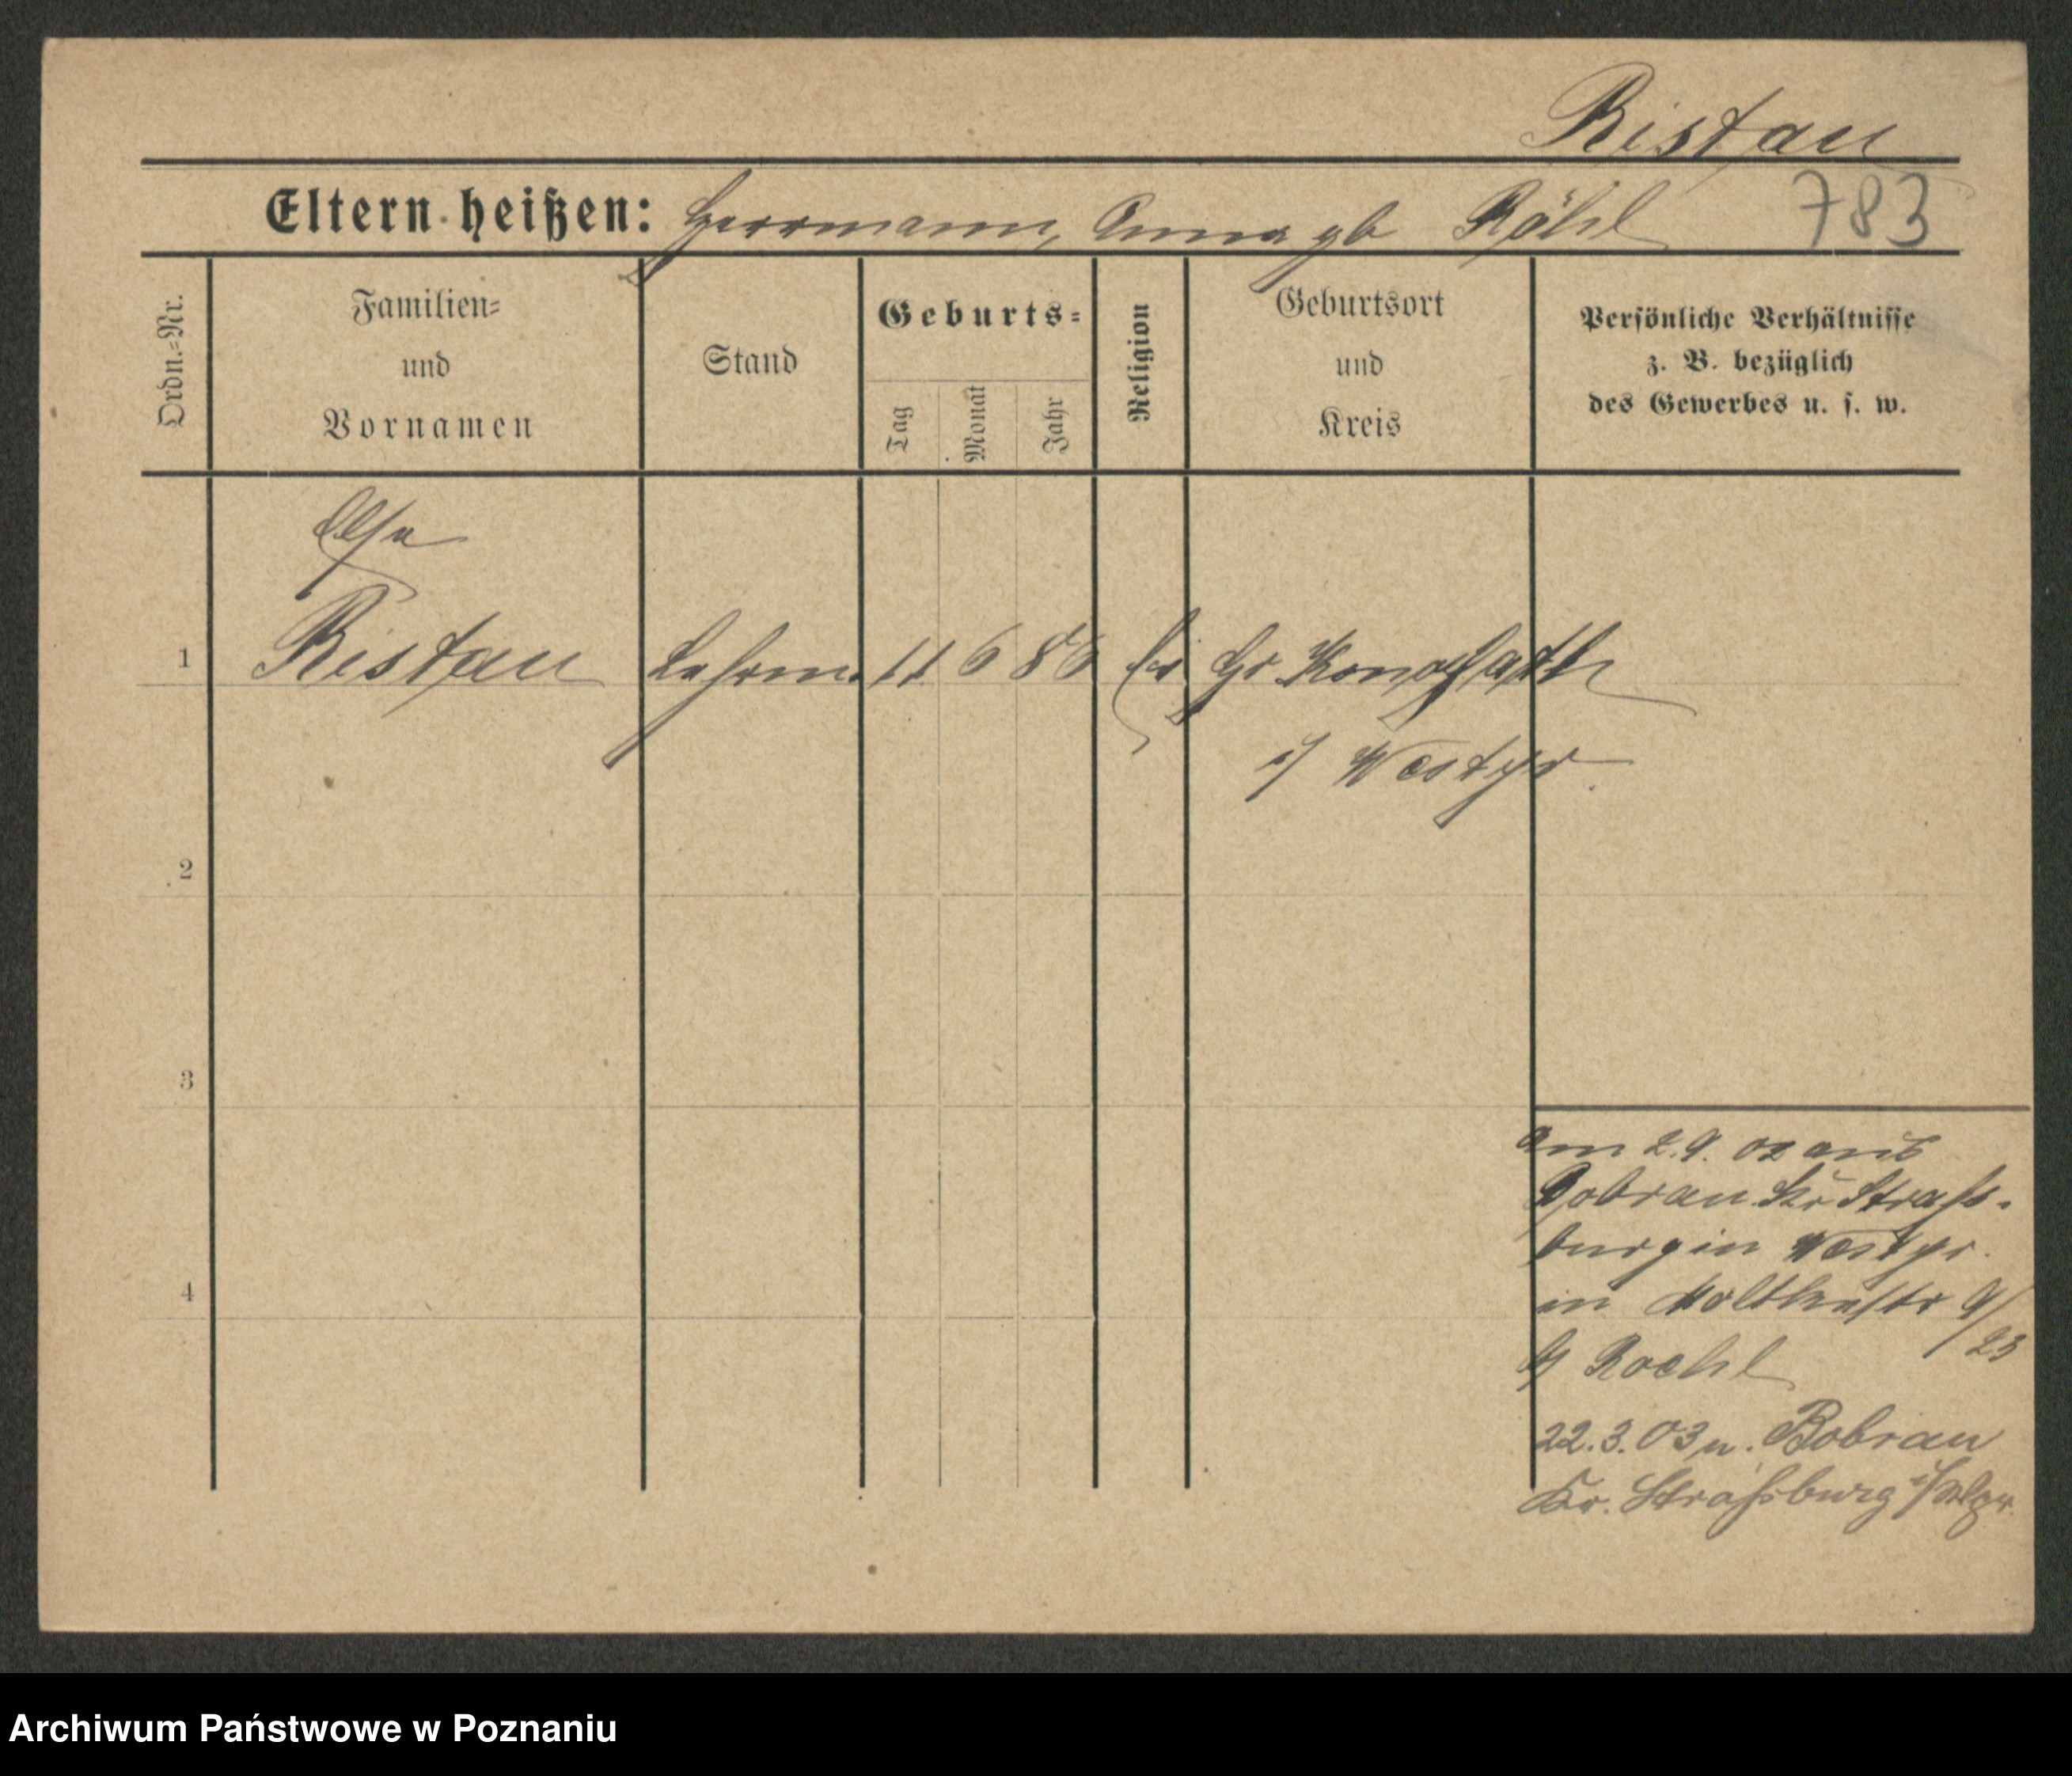 Ristau
Eltern heißen: Herrmann, Anna gb Röhl 783
Ordn.-Nr.
Familien-
und
Vornamen
Stand
Geburts-
Tag
Monat
Jahr
Religion
Geburtsort
und
Kreis
Persönliche Verhältnisse
z. B. bezüglich
des Gewerbes u. s. w.
Else
1 Ristau 11 6 86 Gr
i/ Westpr.
2
3
4
am 2.9. 02 aus
Bobrau Kr Strass-
burg in Westpr.
in Moltkestr 9/
23
b/ Roehl
22.3.03 n. Bobrau
Kr. Straßburg
Archiwum Państwowe w Poznaniu